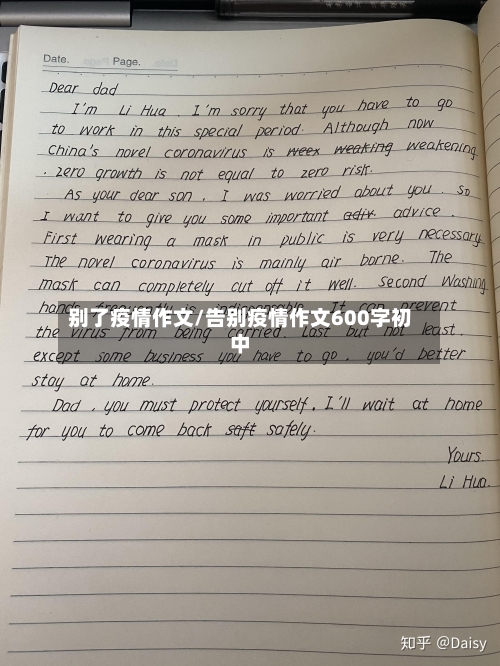 Date. Page.
Dear dad
I'm Li Hua. I'm sorry that you have to go
to work in this special period. Although now
China's novel coronavirus is weex weaking weakening
. zero growth is not equal to zero risk.
As your dear son, I was worried about you. So
I want to give you some important adiv. advice.
First wearing a mask in public is very necessary
The novel coronavirus is mainly air borne. The
mask can completely cut off it well. Second Washing
hands frequently is indispensable. It can prevent
别了疫情作文/告别疫情作文600字初
中
the virus from being carried. Last but not least.
except some business you have to go, you'd better
stay at home.
Dad, you must protect yourself, I'll wait at home
for you to come back saft safely.
Yours.
Li Hua.
知乎 @Daisy